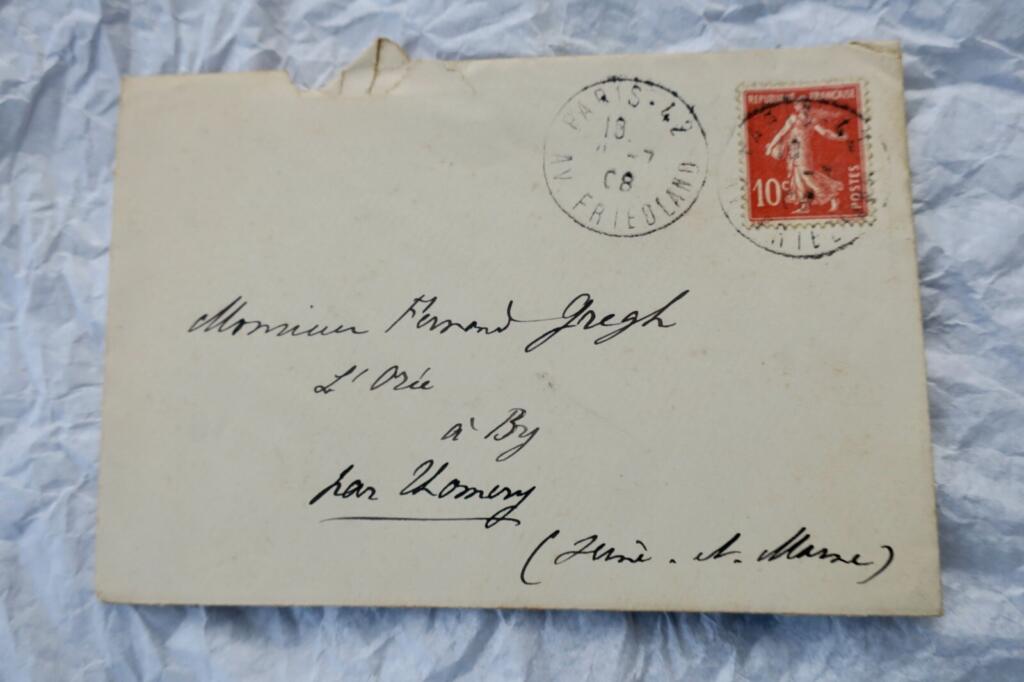 PARIS-42
18.
-7
08
AV FRIEDLAND
REPUBLIQUE FRANÇAISE
10c
POSTES
Monsieur Fernand Gregh
L'Orée
à By
par Thomery
(Seine-et-Marne)